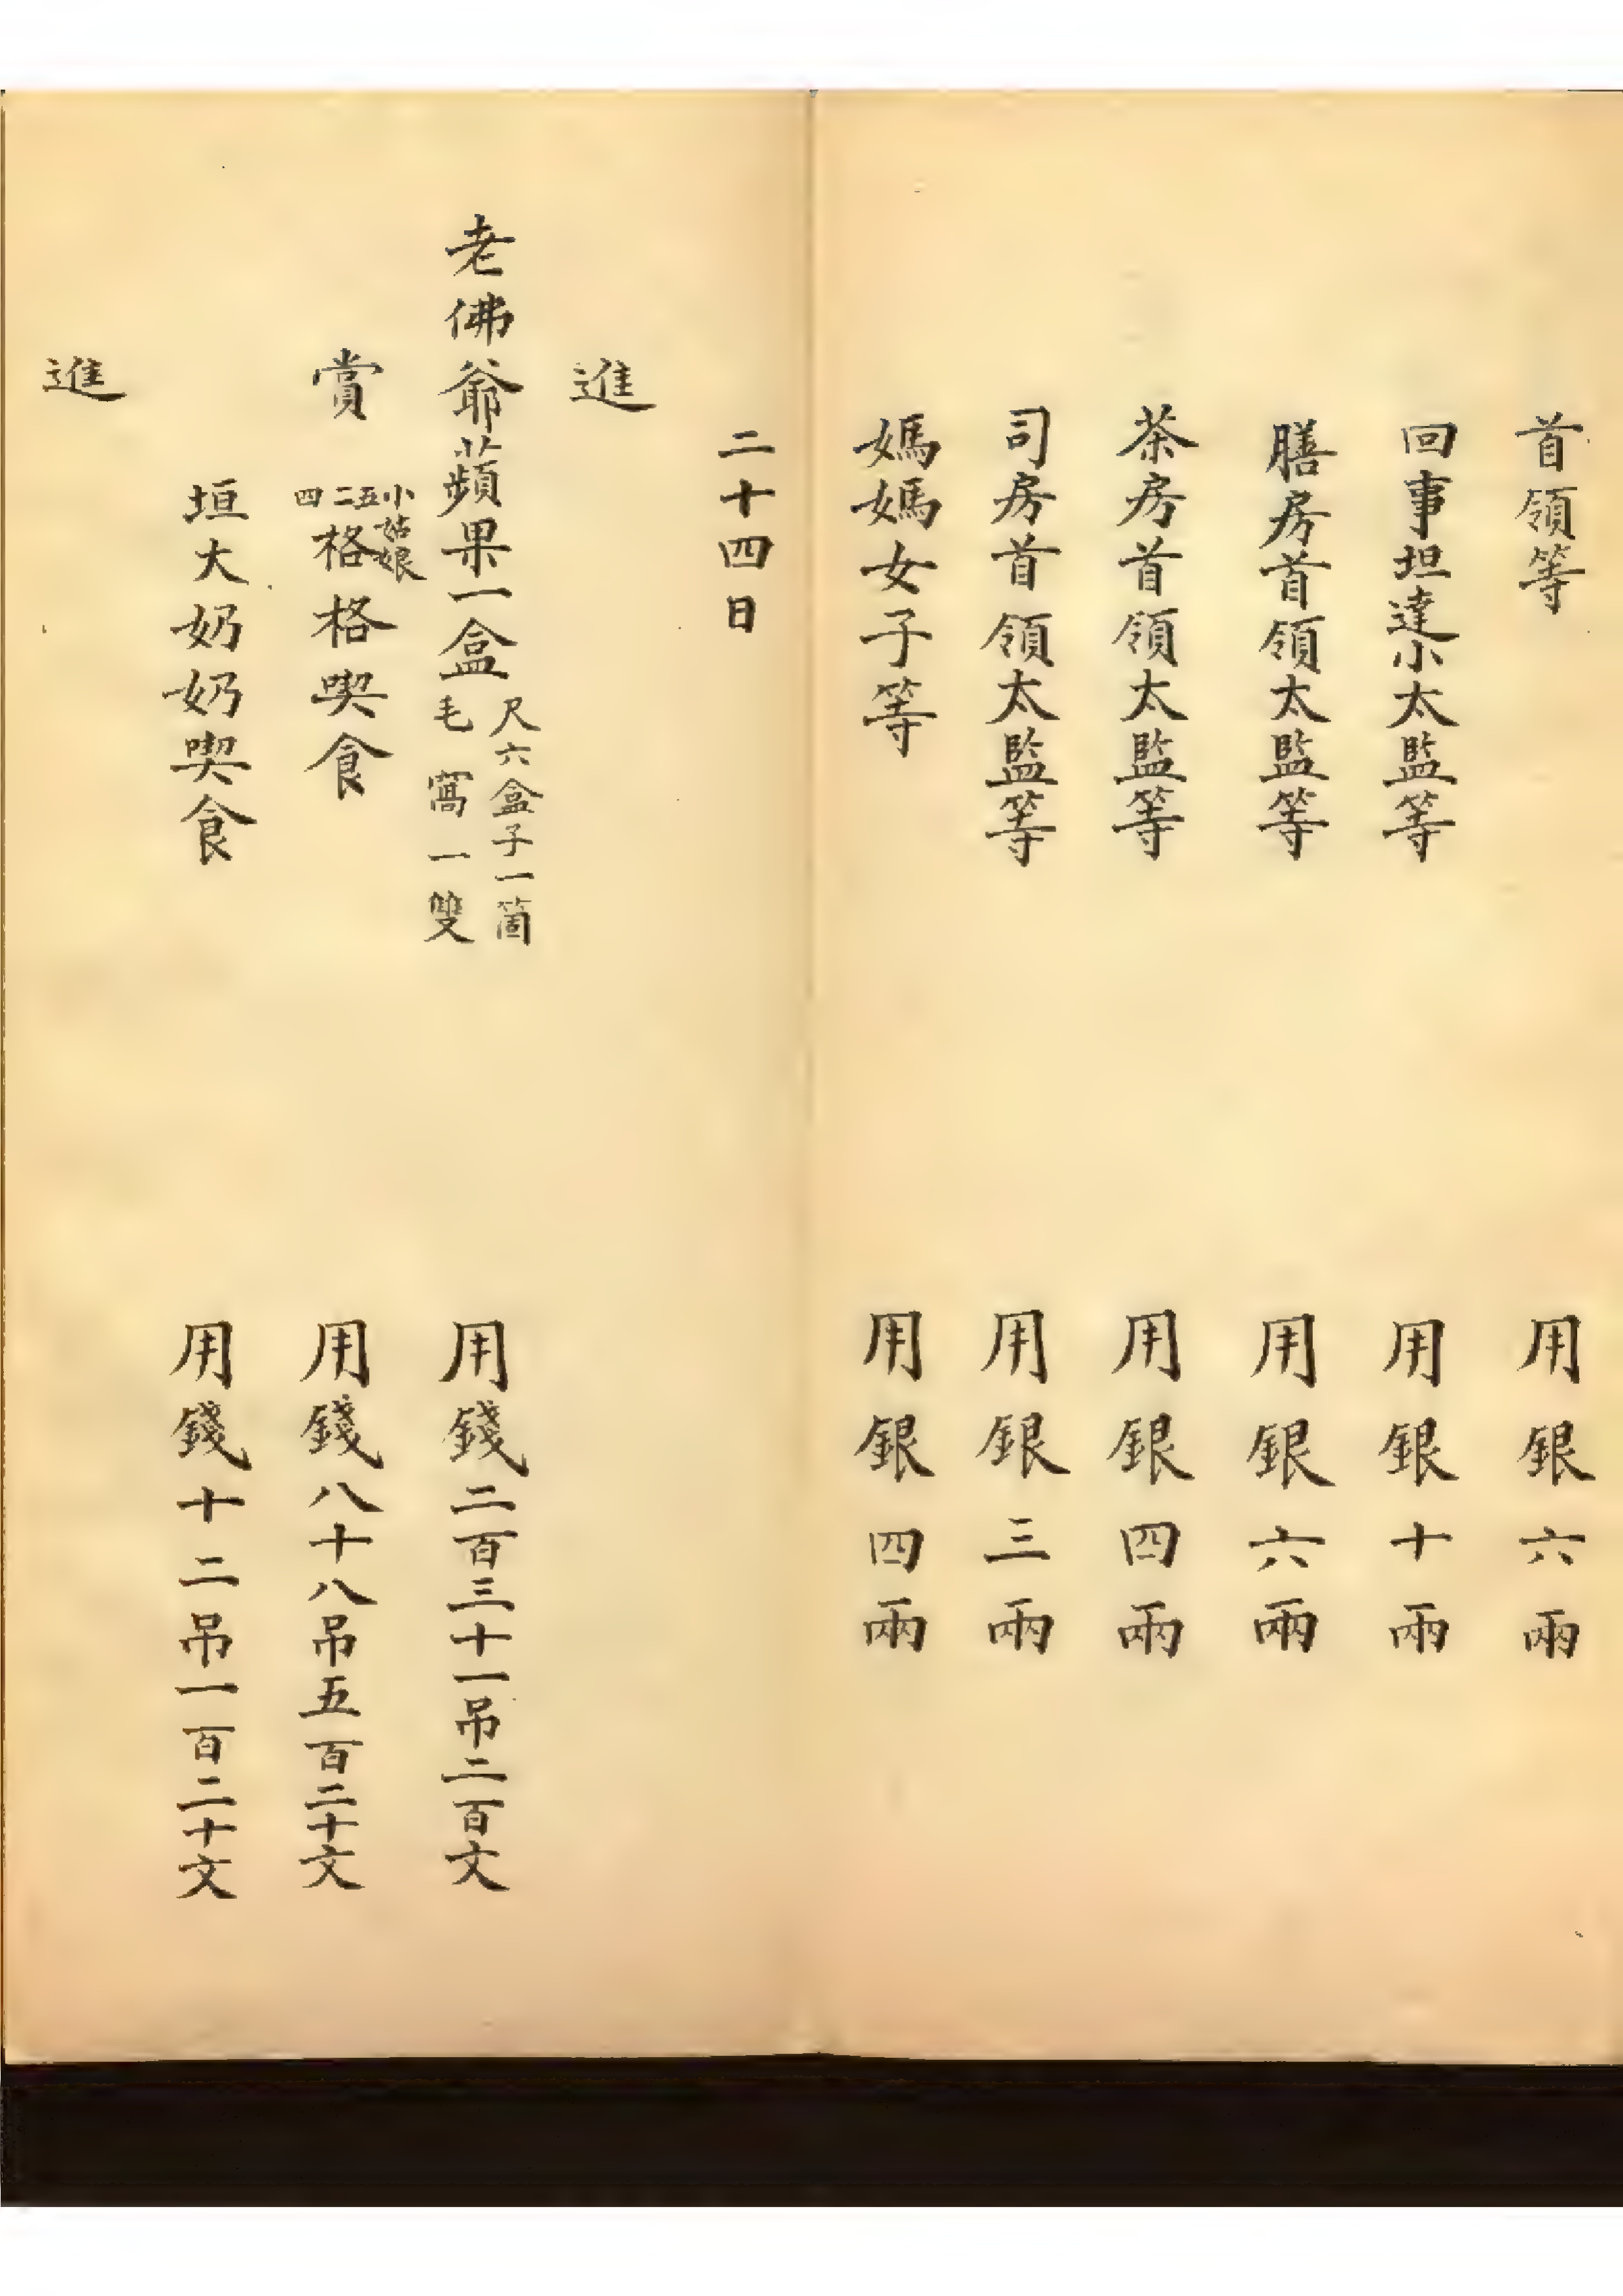 首領等 用銀六兩
回事坦達小太監等 用銀十兩
膳房首領太監等 用銀六兩
茶房首領太監等 用銀四兩
司房首領太監等 用銀三兩
媽媽女子等 用銀四兩
二十四日
進
老佛爺蘋果一盒 尺六盒子一箇 毛窩一雙 用錢二百三十一吊二百文
賞 小姑娘五二四格格喫食 用錢八十八吊五百二十文
垣大奶奶喫食 用錢十二吊一百二十文
進